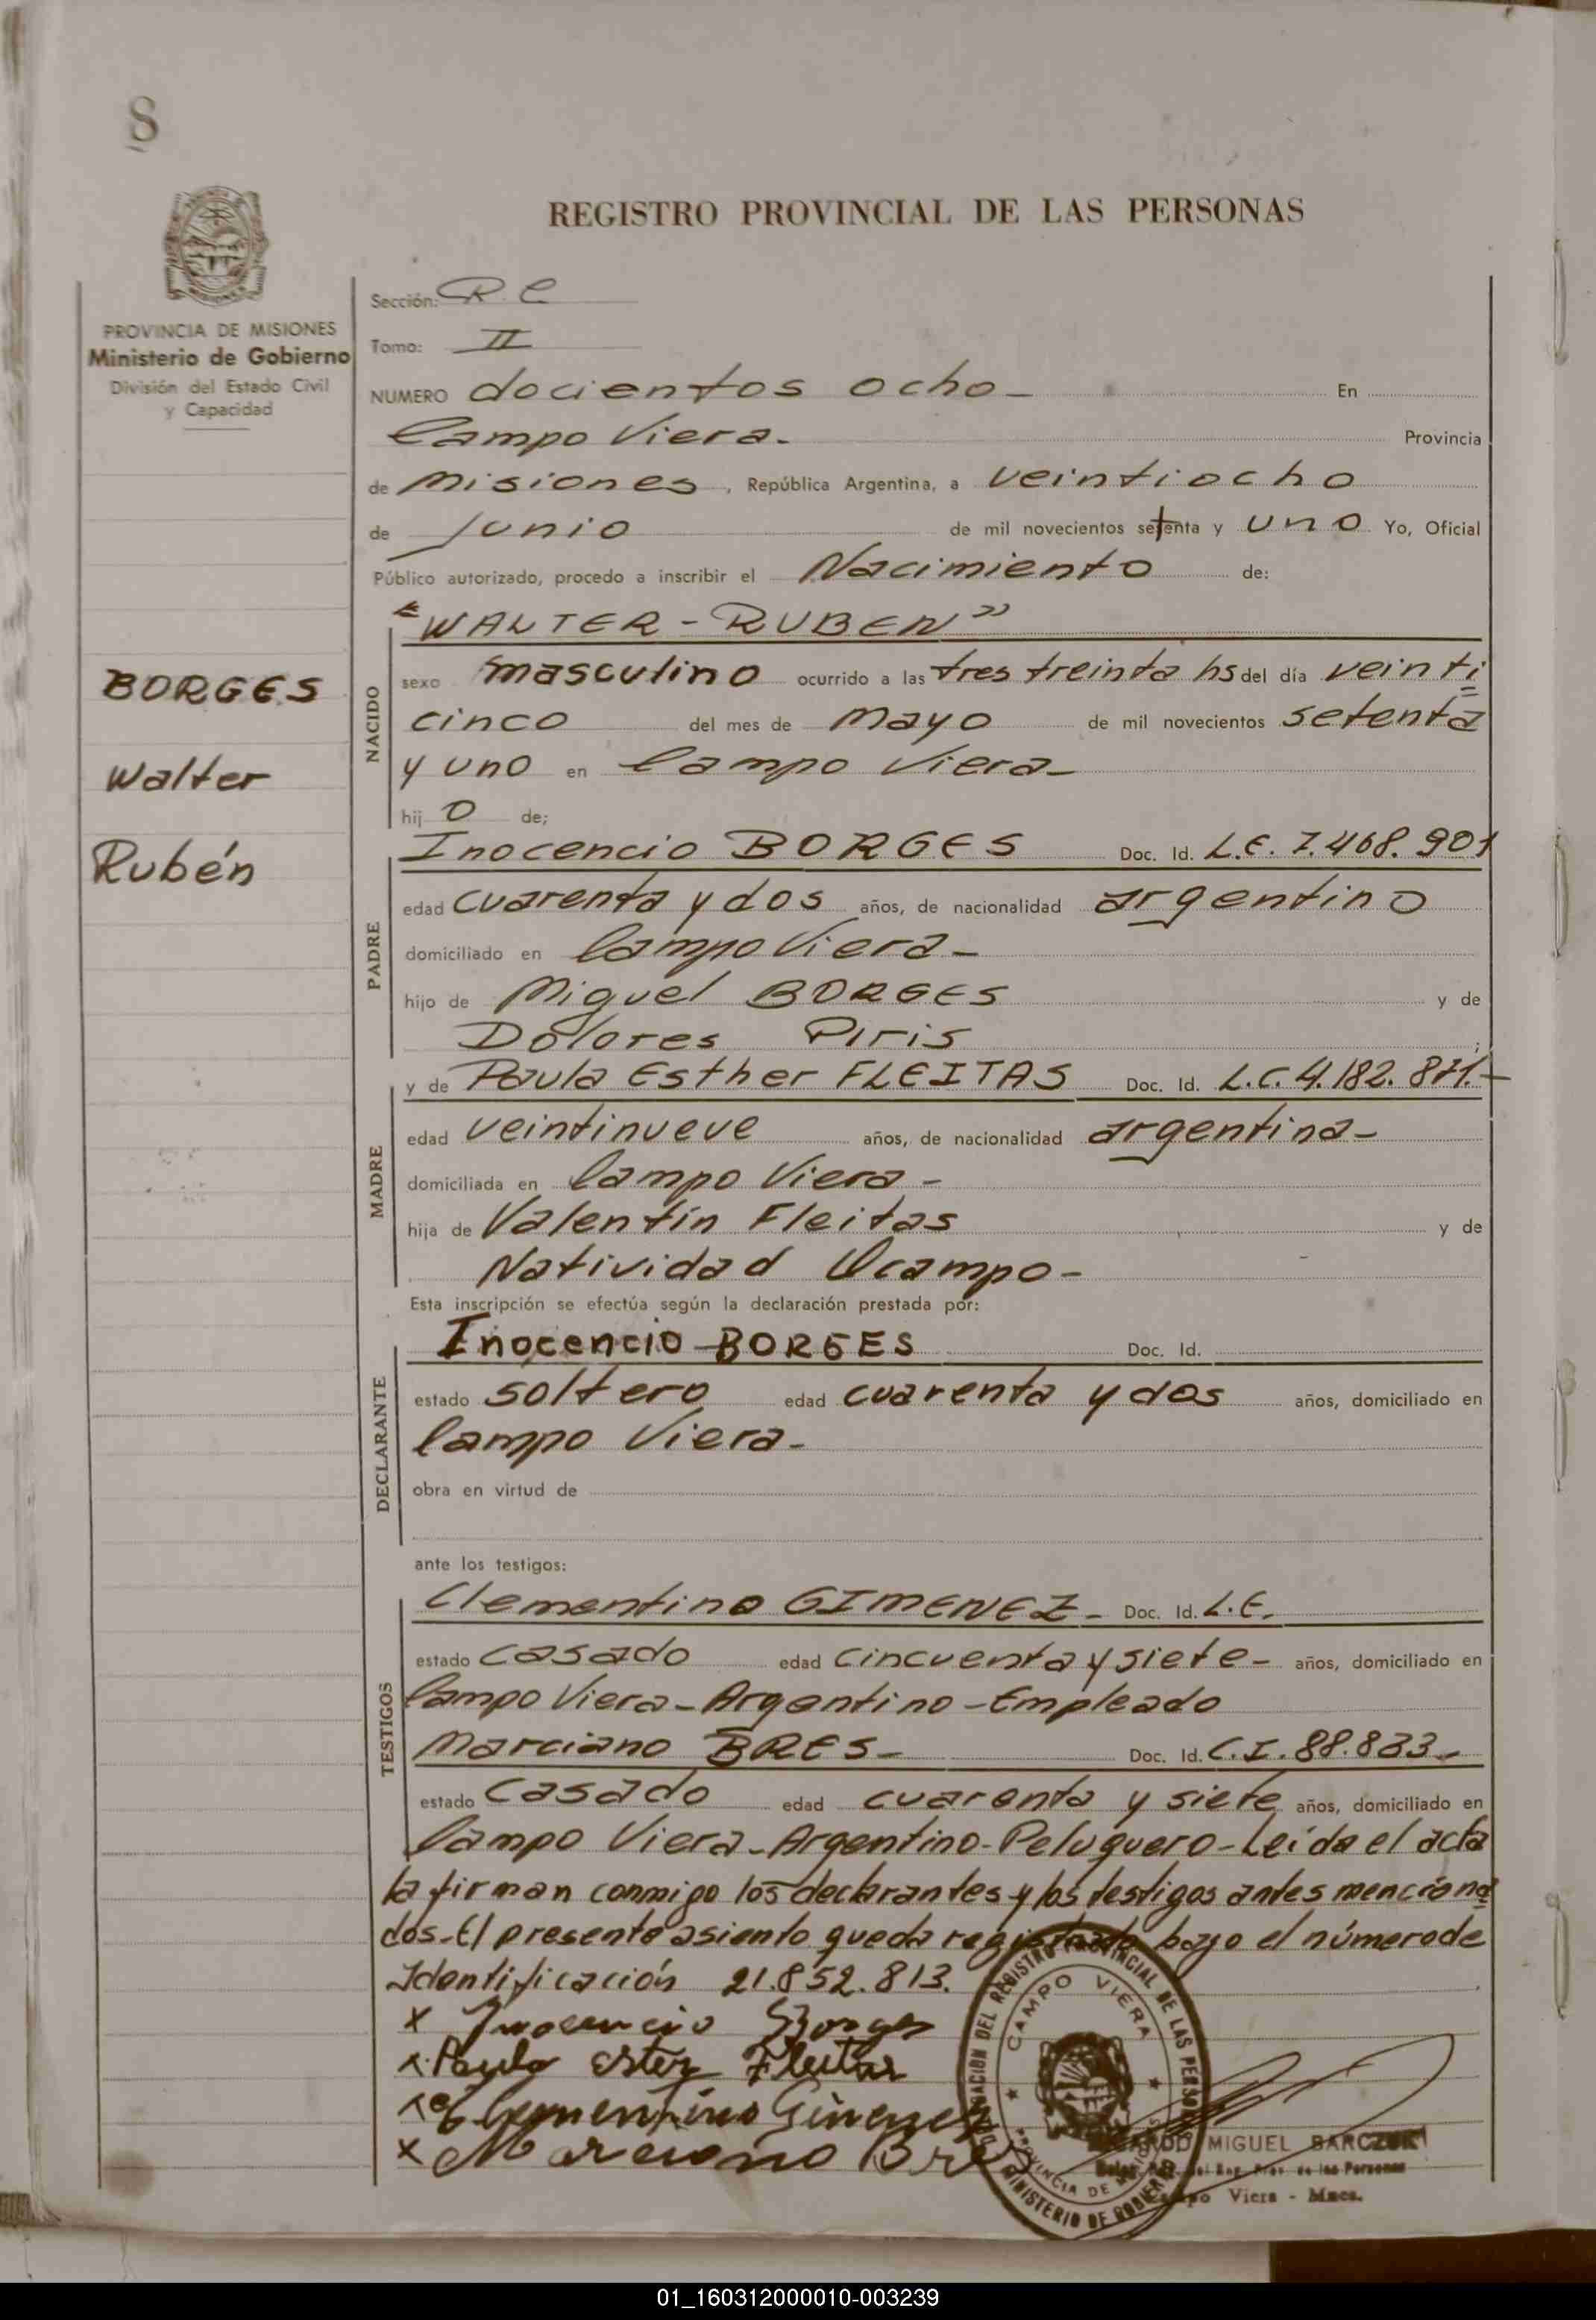 8
REGISTRO PROVINCIAL DE LAS PERSONAS
PROVINCIA DE MISIONES
Ministerio de Gobierno
División del Estado Civil
y Capacidad
BORGES
Walter
Rubén
Sección: R. C
Tomo: II
NUMERO docientos ocho - En
Campo Viera. Provincia
de Misiones, República Argentina, a veintiocho
de Junio de mil novecientos setenta y uno Yo, Oficial
Público autorizado, procedo a inscribir el Nacimiento de:
"WALTER - RUBEN"
NACIDO
sexo masculino ocurrido a las tres treinta hs del día veinti
cinco del mes de mayo de mil novecientos setenta
y uno en Campo Viera -
hij o de;
PADRE
Inocencio BORGES Doc. Id. L.E. 7.468.901
edad cuarenta y dos años, de nacionalidad argentino
domiciliado en Campo Viera -
hijo de Miguel BORGES y de
Dolores Piris ;
MADRE
y de Paula Esther FLEITAS Doc. Id. L.C. 4.182.871.-
edad veintinueve años, de nacionalidad argentina -
domiciliada en Campo Viera -
hija de Valentín Fleitas y de
Natividad Ocampo -
Esta inscripción se efectúa según la declaración prestada por:
DECLARANTE
Inocencio BORGES Doc. Id.
estado soltero edad cuarenta y dos años, domiciliado en
Campo Viera -
obra en virtud de
ante los testigos:
TESTIGOS
Clementino GIMENEZ - Doc. Id. L.E.
estado casado edad cincuenta y siete - años, domiciliado en
Campo Viera - Argentino - Empleado
Marciano BRES - Doc. Id. C.I. 88.833 -
estado casado edad cuarenta y siete años, domiciliado en
Campo Viera - Argentino - Peluquero - Leída el acta
la firman conmigo los declarantes y los testigos antes menciona
dos - El presente asiento queda registrado bajo el número de
Identificación 21.852.813.
x Inocencio Borges
x Paula Ester Fleitas
x Clementino Gimenez
x Marciano Bres
DEL REGISTRO PROVINCIAL DE LAS PERSONAS
CAMPO VIERA
PROVINCIA DE MISIONES
MINISTERIO DE GOBIERNO
MIGUEL BARCZUK
Reg. Prov. de las Personas
Campo Viera - Mnes.
01_160312000010-003239